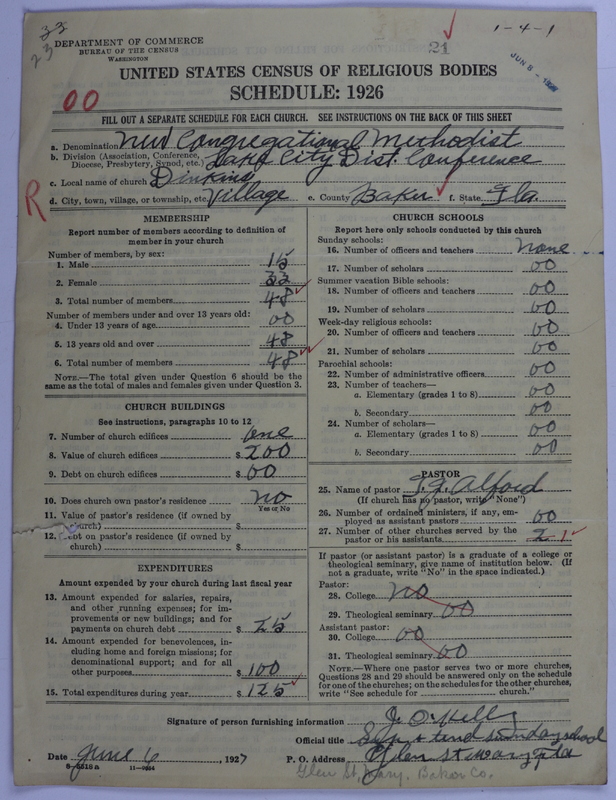 33
23
DEPARTMENT OF COMMERCE
BUREAU OF THE CENSUS
WASHINGTON
24
1-4-1
JUN 8 -
UNITED STATES CENSUS OF RELIGIOUS BODIES
SCHEDULE: 1926
00
FILL OUT A SEPARATE SCHEDULE FOR EACH CHURCH. SEE INSTRUCTIONS ON THE BACK OF THIS SHEET
a. Denomination New Congregational Methodist
b. Division (Association, Conference, Diocese, Presbytery, Synod, etc.) Lake City Dist. Conference
c. Local name of church Dinkins
R
d. City, town, village, or township, etc. Village e. County Baker f. State Fla.
MEMBERSHIP
Report number of members according to definition of
member in your church
Number of members, by sex:
1. Male 15
2. Female 33
3. Total number of members 48
Number of members under and over 13 years old:
4. Under 13 years of age 00
5. 13 years old and over 48
6. Total number of members 48
NOTE.—The total given under Question 6 should be the
same as the total of males and females given under Question 3.
CHURCH BUILDINGS
See instructions, paragraphs 10 to 12
7. Number of church edifices one
8. Value of church edifices $ 200
9. Debt on church edifices $ 00
10. Does church own pastor's residence no
Yes or No
11. Value of pastor's residence (if owned by
church) $
12. Debt on pastor's residence (if owned by
church) $
EXPENDITURES
Amount expended by your church during last fiscal year
13. Amount expended for salaries, repairs,
and other running expenses; for im-
provements or new buildings; and for
payments on church debt $ 25
14. Amount expended for benevolences, in-
cluding home and foreign missions; for
denominational support; and for all
other purposes $ 100
15. Total expenditures during year $ 125
CHURCH SCHOOLS
Report here only schools conducted by this church
Sunday schools:
16. Number of officers and teachers none
17. Number of scholars 00
Summer vacation Bible schools:
18. Number of officers and teachers 00
19. Number of scholars 00
Week-day religious schools:
20. Number of officers and teachers 00
21. Number of scholars 00
Parochial schools:
22. Number of administrative officers 00
23. Number of teachers—
a. Elementary (grades 1 to 8) 00
b. Secondary 00
24. Number of scholars—
a. Elementary (grades 1 to 8) 00
b. Secondary 00
PASTOR
25. Name of pastor Alford
(If church has no pastor, write "None")
26. Number of ordained ministers, if any, em-
ployed as assistant pastors 00
27. Number of other churches served by the
pastor or his assistants 2 1
If pastor (or assistant pastor) is a graduate of a college or
theological seminary, give name of institution below. (If
not a graduate, write "No" in the space indicated.)
Pastor:
28. College no
29. Theological seminary 00
Assistant pastor:
30. College 00
31. Theological seminary 00
NOTE.—Where one pastor serves two or more churches,
Questions 28 and 29 should be answered only on the schedule
for one of the churches; on the schedules for the other churches,
write "See schedule for church."
Signature of person furnishing information J. O. Kelly
Official title Sup tend sunday school
Date June 6, 1927 P. O. Address Glen St Mary Fla
8-5518a 11-9034
Glen St. Mary. Baker Co.